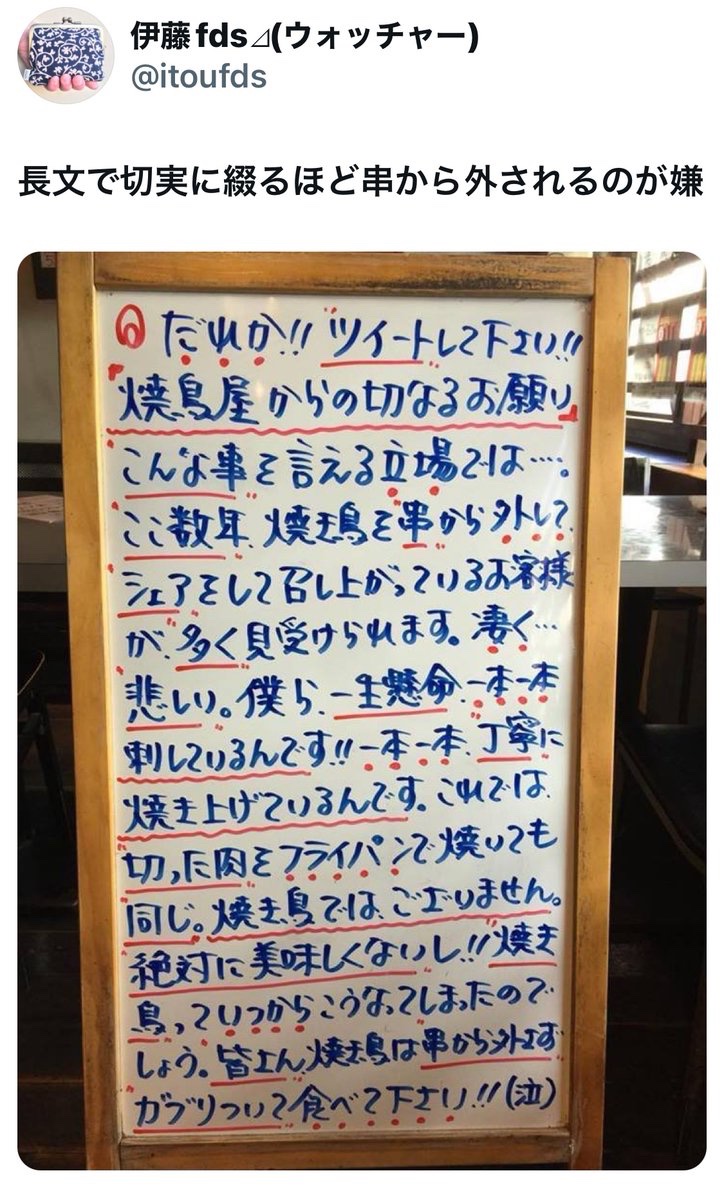 伊藤fds⊿(ウォッチャー)
@itoufds
長文で切実に綴るほど串から外されるのが嫌
だれか!! ツイートして下さい!!
「焼鳥屋からの切なるお願い」
こんな事を言える立場では…。
ここ数年、焼き鳥を串から外して、
シェアをして召し上がっているお客様
が、多く見受けられます。凄く…
悲しい。僕ら、一生懸命、一本一本
刺しているんです!! 一本一本、丁寧に
焼き上げているんです。これでは、
切った肉をフライパンで焼いても
同じ。焼き鳥では、ございません。
絶対に美味しくないし!! 焼き
鳥っていつからこうなってしまったので
しょう。皆さん、焼き鳥は串から外さず
ガブリついて食べて下さい!! (泣)